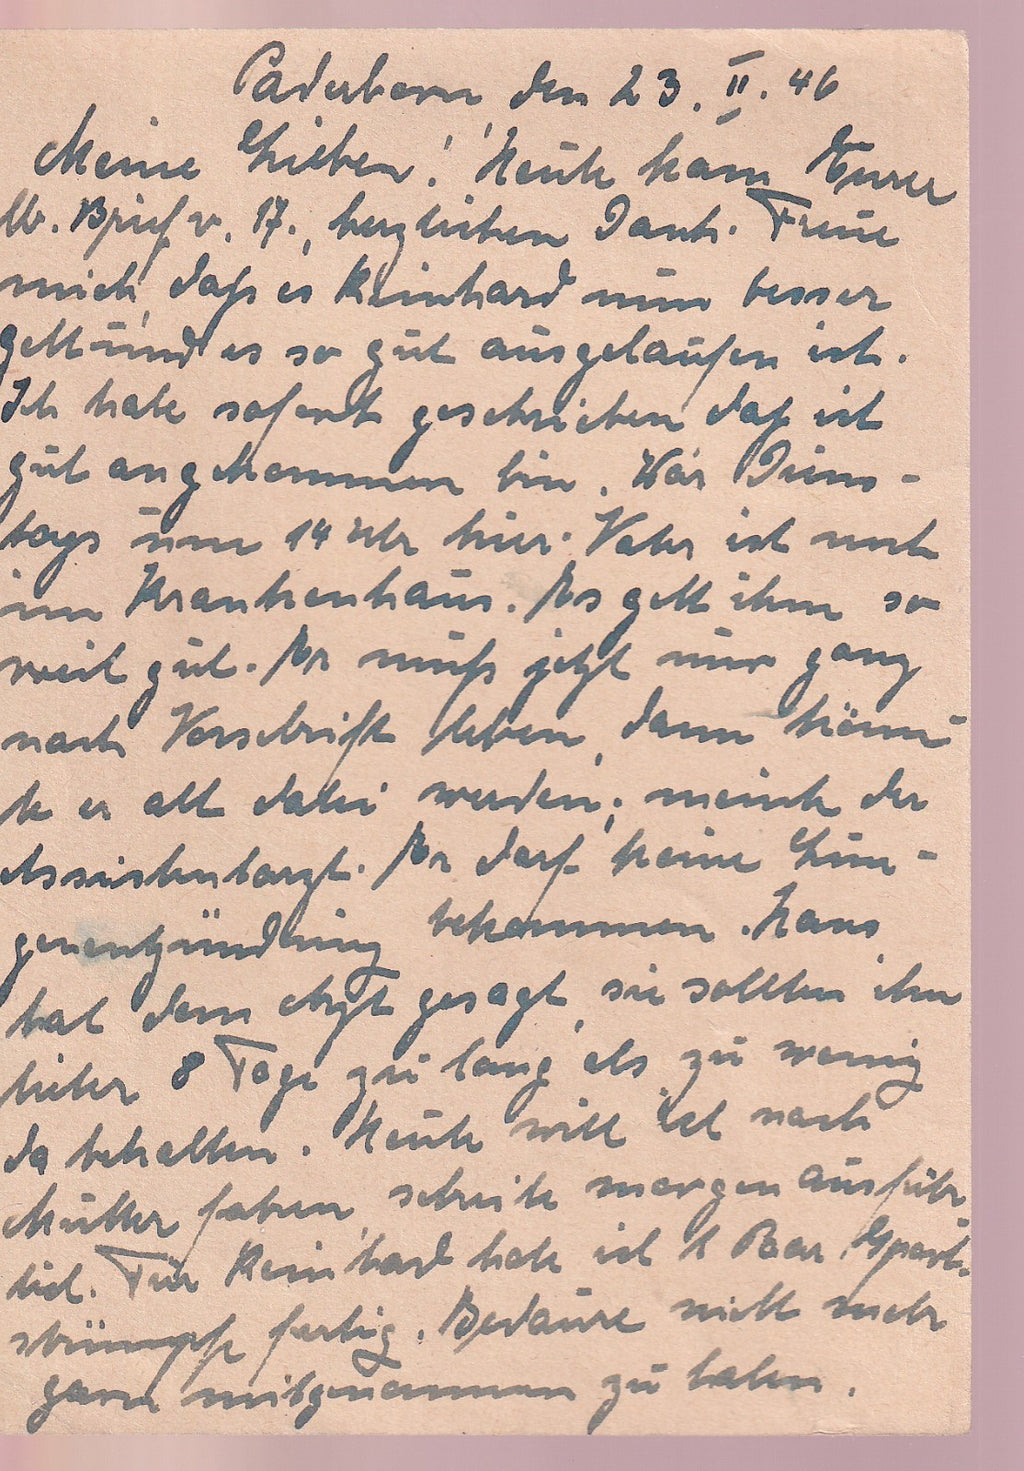 Paderborn den 23. II. 46
Meine Lieben! Heute kam Eurer
lb. Brief v. 17., herzlichen Dank. Freue
mich, daß es Reinhard nun besser
geht und es so gut ausgelaufen ist.
Ich habe sofort geschrieben daß ich
gut angekommen bin. War Diens-
tags um 14 Uhr hier. Vater ist noch
im Krankenhaus. Es geht ihm so
weit gut. Er muß jetzt nur ganz
nach Vorschrift leben, dann könn-
te er alt dabei werden, meinte der
Assistenzarzt. Er darf keine Lun-
genentzündung bekommen. Hans
hat dem Arzt gesagt, sie sollten ihn
lieber 8 Tage zu lang als zu wenig
da behalten. Heute will ich nach
Mutter fahren, schreibe morgen ausführ-
lich. Für Reinhard habe ich 1 Paar Sport-
strümpfe fertig. Bedaure nicht mehr
garn mitgenommen zu haben.